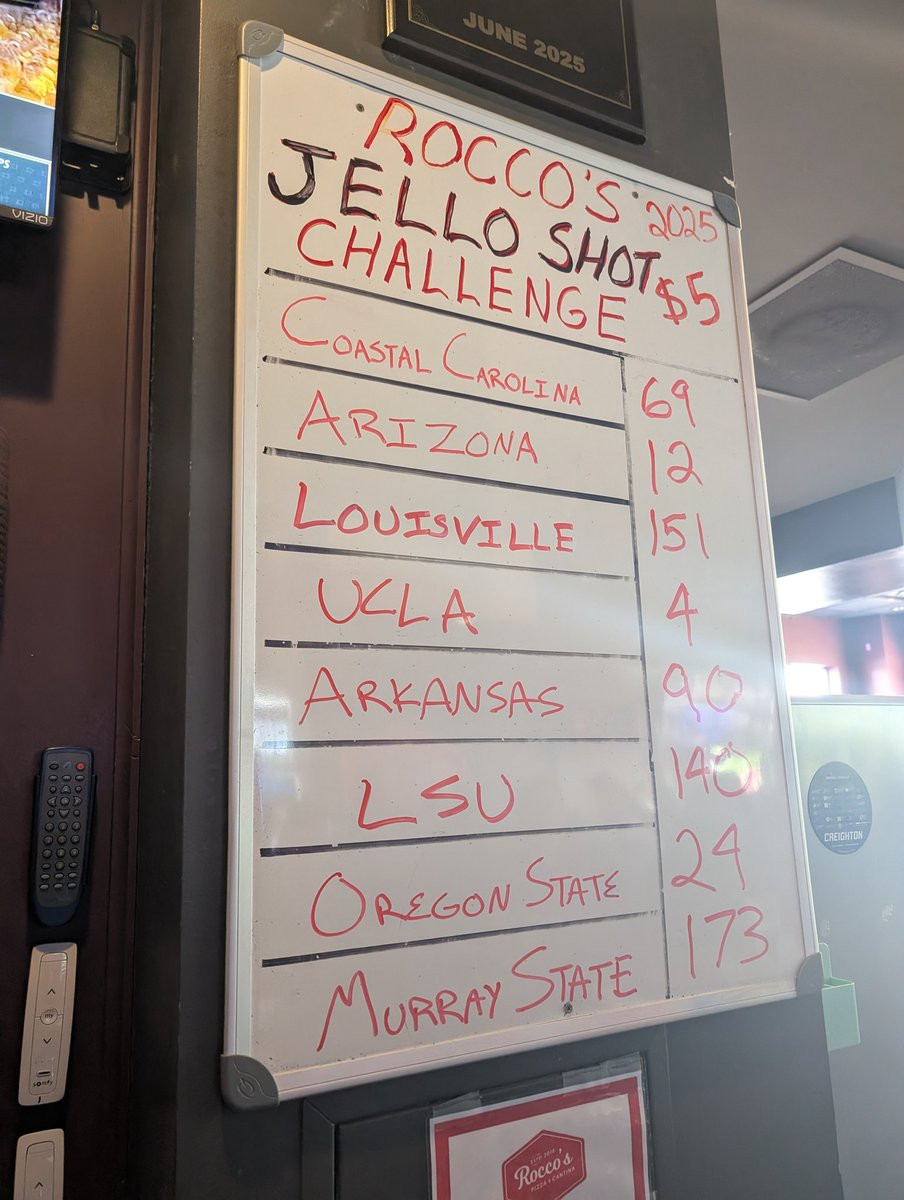 JUNE 2025
ROCCO'S 2025
JELLO SHOT
CHALLENGE $5
COASTAL CAROLINA 69
ARIZONA 12
LOUISVILLE 151
UCLA 4
ARKANSAS 90
LSU 140
OREGON STATE 24
MURRAY STATE 173
VIZIO
CREIGHTON
my
somfy
Rocco's
PIZZA + CANTINA